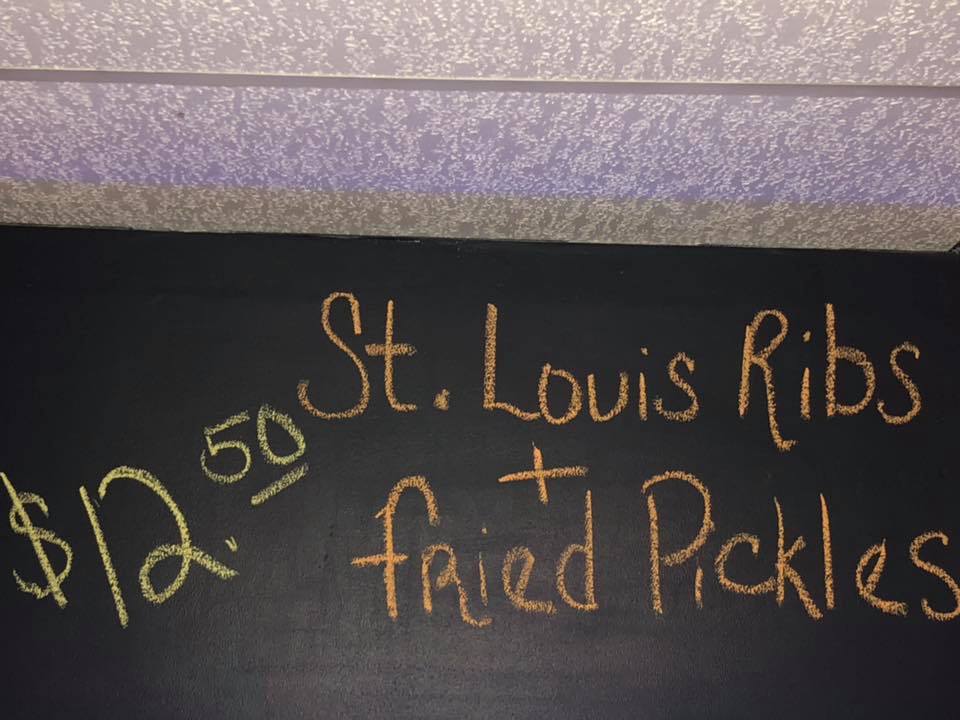 St. Louis Ribs
+
$12.50 fried Pickles